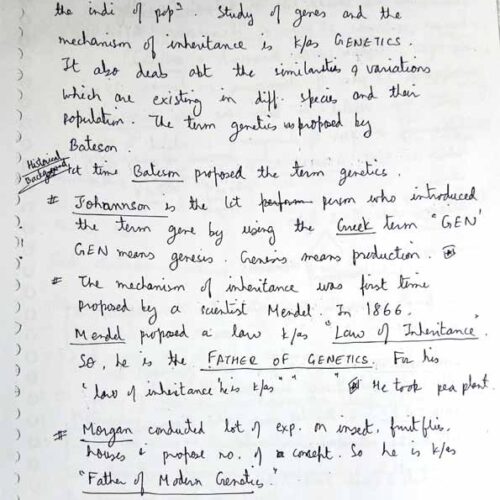 the indi of popn. Study of genes and the
mechanism of inheritance is k/as GENETICS.
It also deals abt the similarities & variations
which are existing in diff. species and their
population. The term genetics is proposed by
Bateson.
Historical
Background
1st time Bateson proposed the term genetics.
# Johannson is the 1st person who introduced
the term gene by using the Greek term "GEN'
GEN means genesis. Genesis means production.
# The mechanism of inheritance was first time
proposed by a scientist Mendel. In 1866,
Mendel proposed a law k/as "Law of Inheritance".
So, he is the FATHER OF GENETICS. For his
"law of inheritance' he is k/as " " He took pea plant.
# Morgan conducted lot of exp. on insect, fruitflies,
houses & propose no. of concept. So he is k/as
"Father of Modern Genetics."